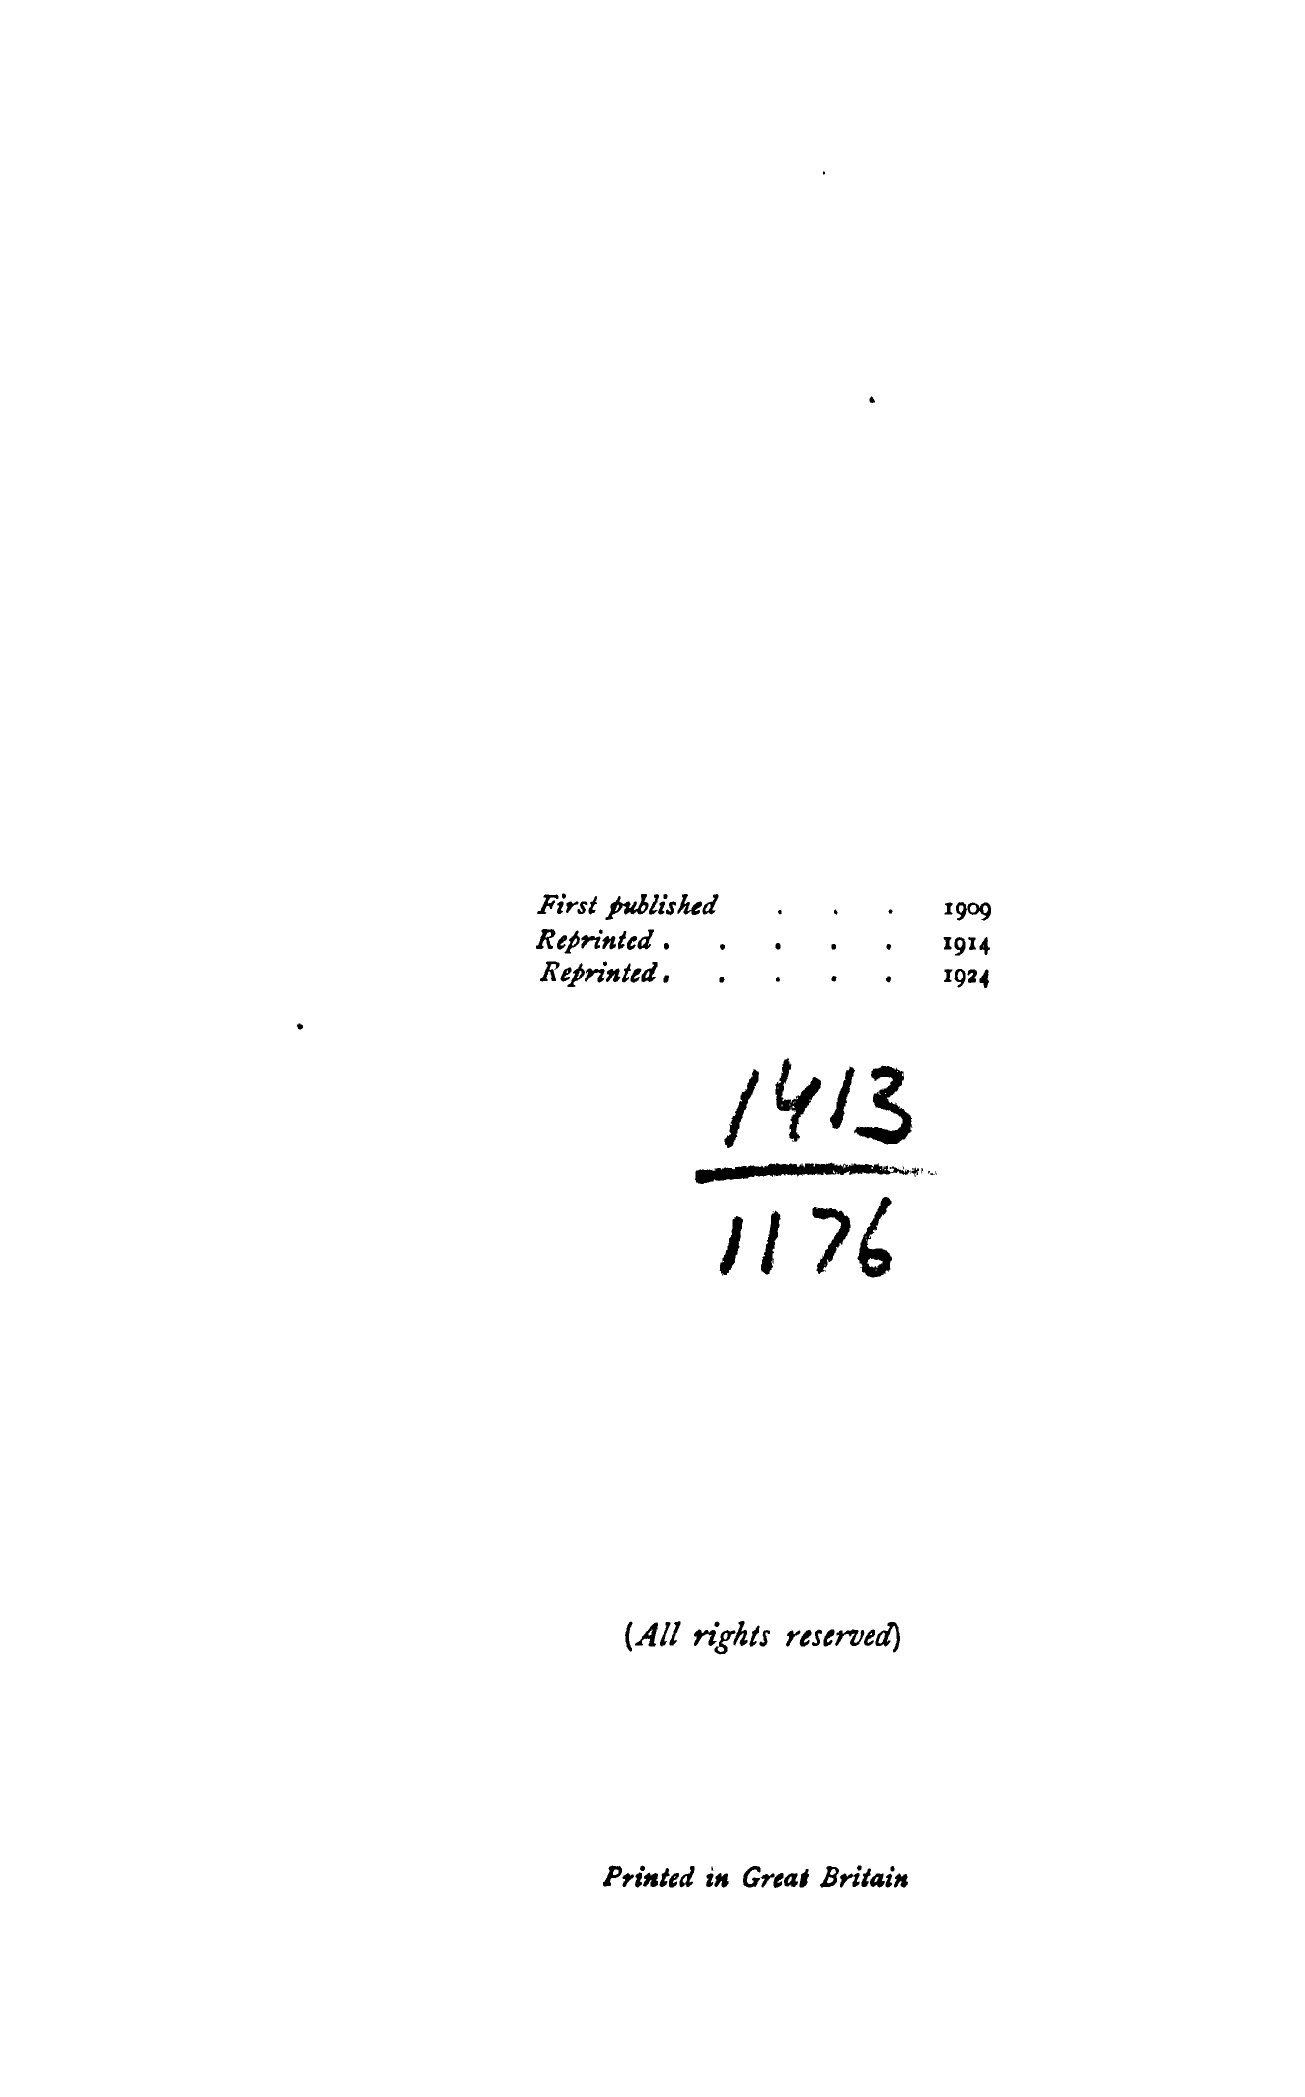 First published . . . 1909
Reprinted . . . . . 1914
Reprinted . . . . . 1924
1413
1176
(All rights reserved)
Printed in Great Britain